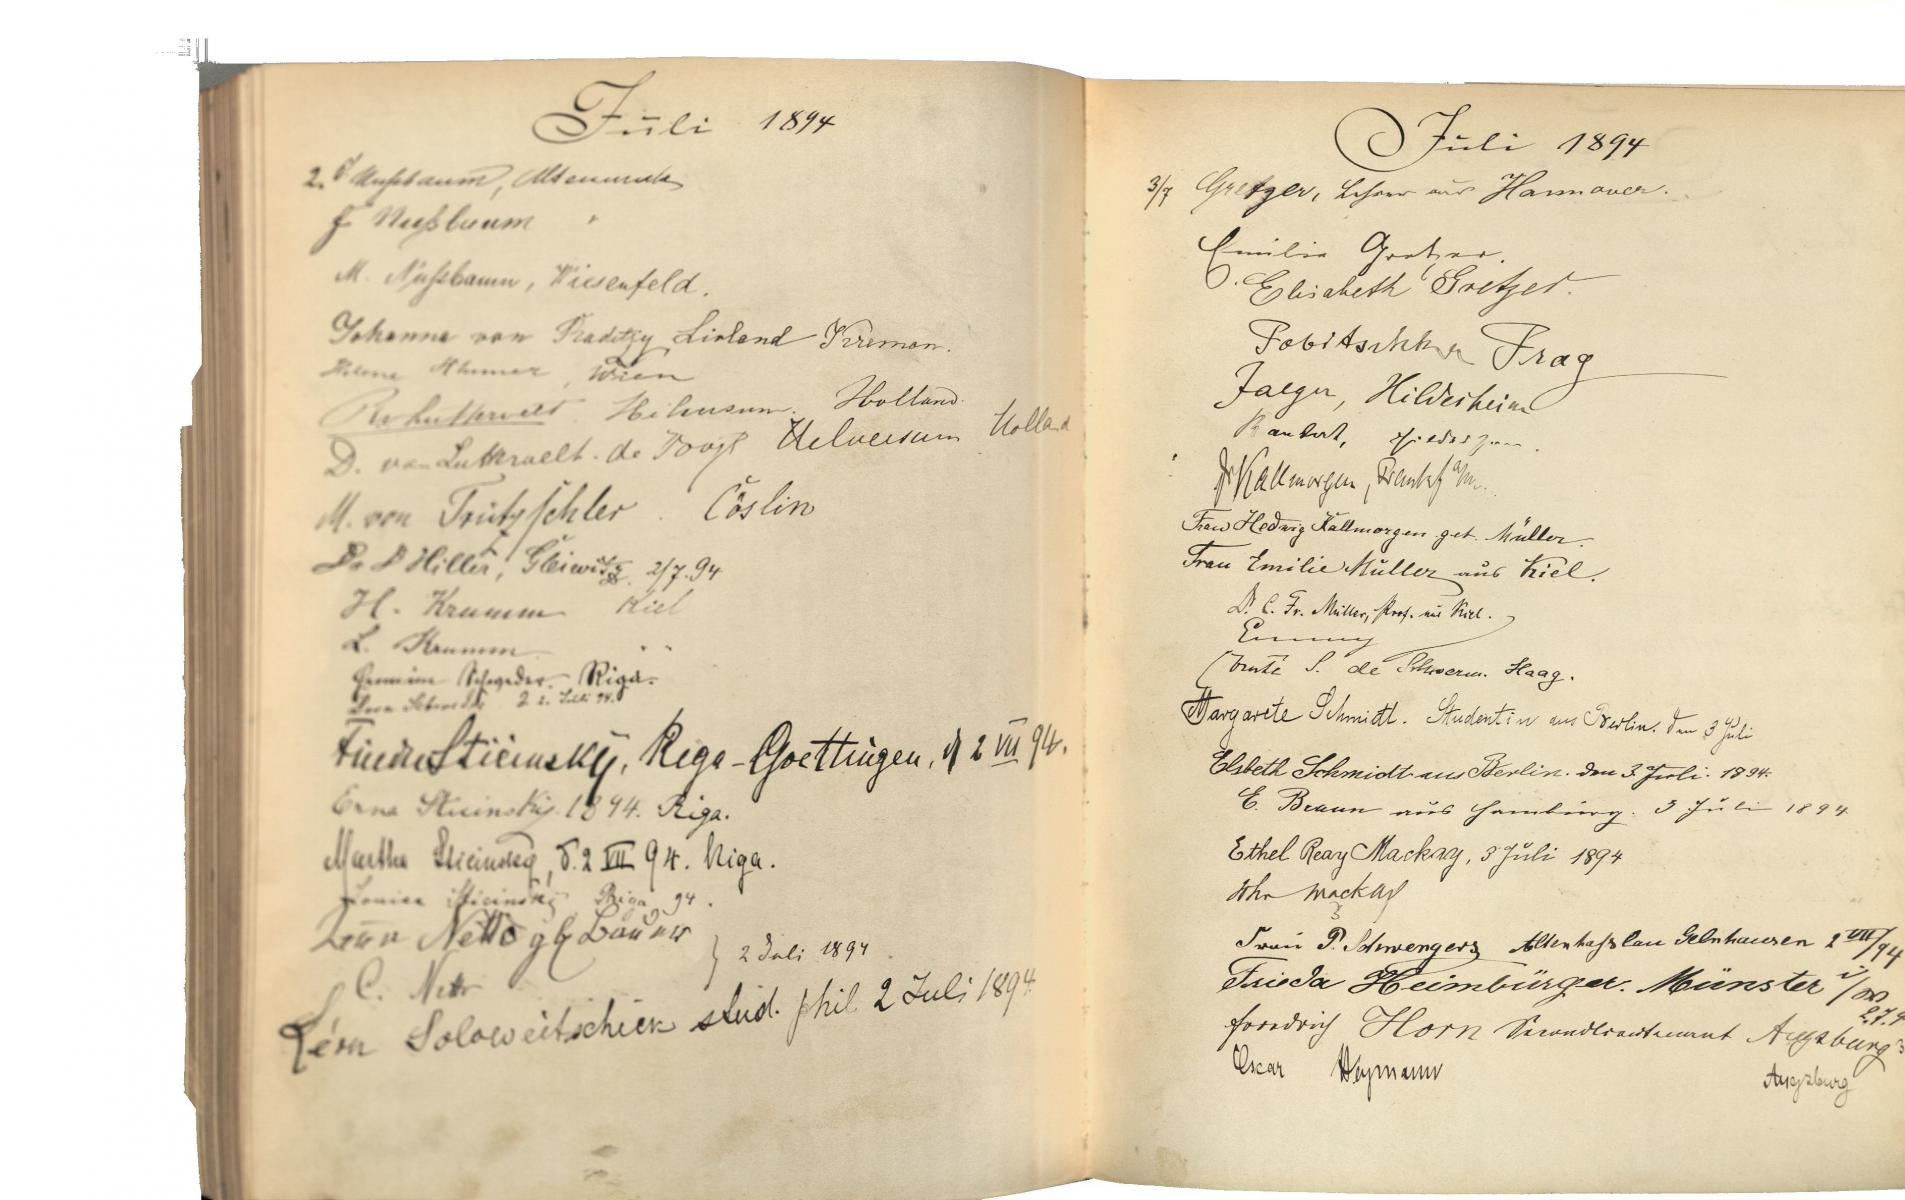 Juli 1894
2. Nußbaum,
J Nußbaum "
M. Nußbaum, Wiesenfeld.
Johanna von Livland Kremon.
Helene Wien
Hilversum. Holland.
D. van Lutterveld - de Voogt Hilversum Holland
M. von Trützschler. Cöslin
Dr Hiller, Gleiwitz. 2/7.94
H. Krumm Kiel
L. Krumm " "
Hermine Schweder. Riga.
Dora Schweder 2. Juli 94.
Sticinsky, Riga - Goettingen, d 2 VII 94.
Erna Sticinsky. 1894. Riga.
Martha Sticinsky, d. 2 VII 94. Riga.
Sticinsky Riga 94.
Netto
C. Netto } 2 Juli 1894.
Soloweitschick stud. phil 2 Juli 1894
Juli 1894
3/7 Gretzer, Lehrer aus Hannover.
Emilie Gretzer.
Elisabeth Gretzer.
Prag
Jaeger, Hildesheim
Dr Kallmorgen, Frankf a/m.
Frau Hedwig Kallmorgen get. Müller.
Frau Emilie Müller aus Kiel.
Dr. C. Fr. Müller, Prof. aus Kiel.
Emmy
S. de Haag.
Margarete Schmidt. Studentin aus Berlin. den 3 Juli
Elsbeth Schmidt aus Berlin. den 3. Juli. 1894.
E. Braun aus Hamburg. 3 Juli 1894
Ethel Reay Mackay, 3 Juli 1894
John Mackay
Frau P. Schwengers Altenhaßlau Gelnhausen 2 VII/94
Frieda Heimbürger. Münster i/W
2.7.9
Friedrich Horn Secondlieutenant Augsburg 3
Oscar Heymann Augsburg